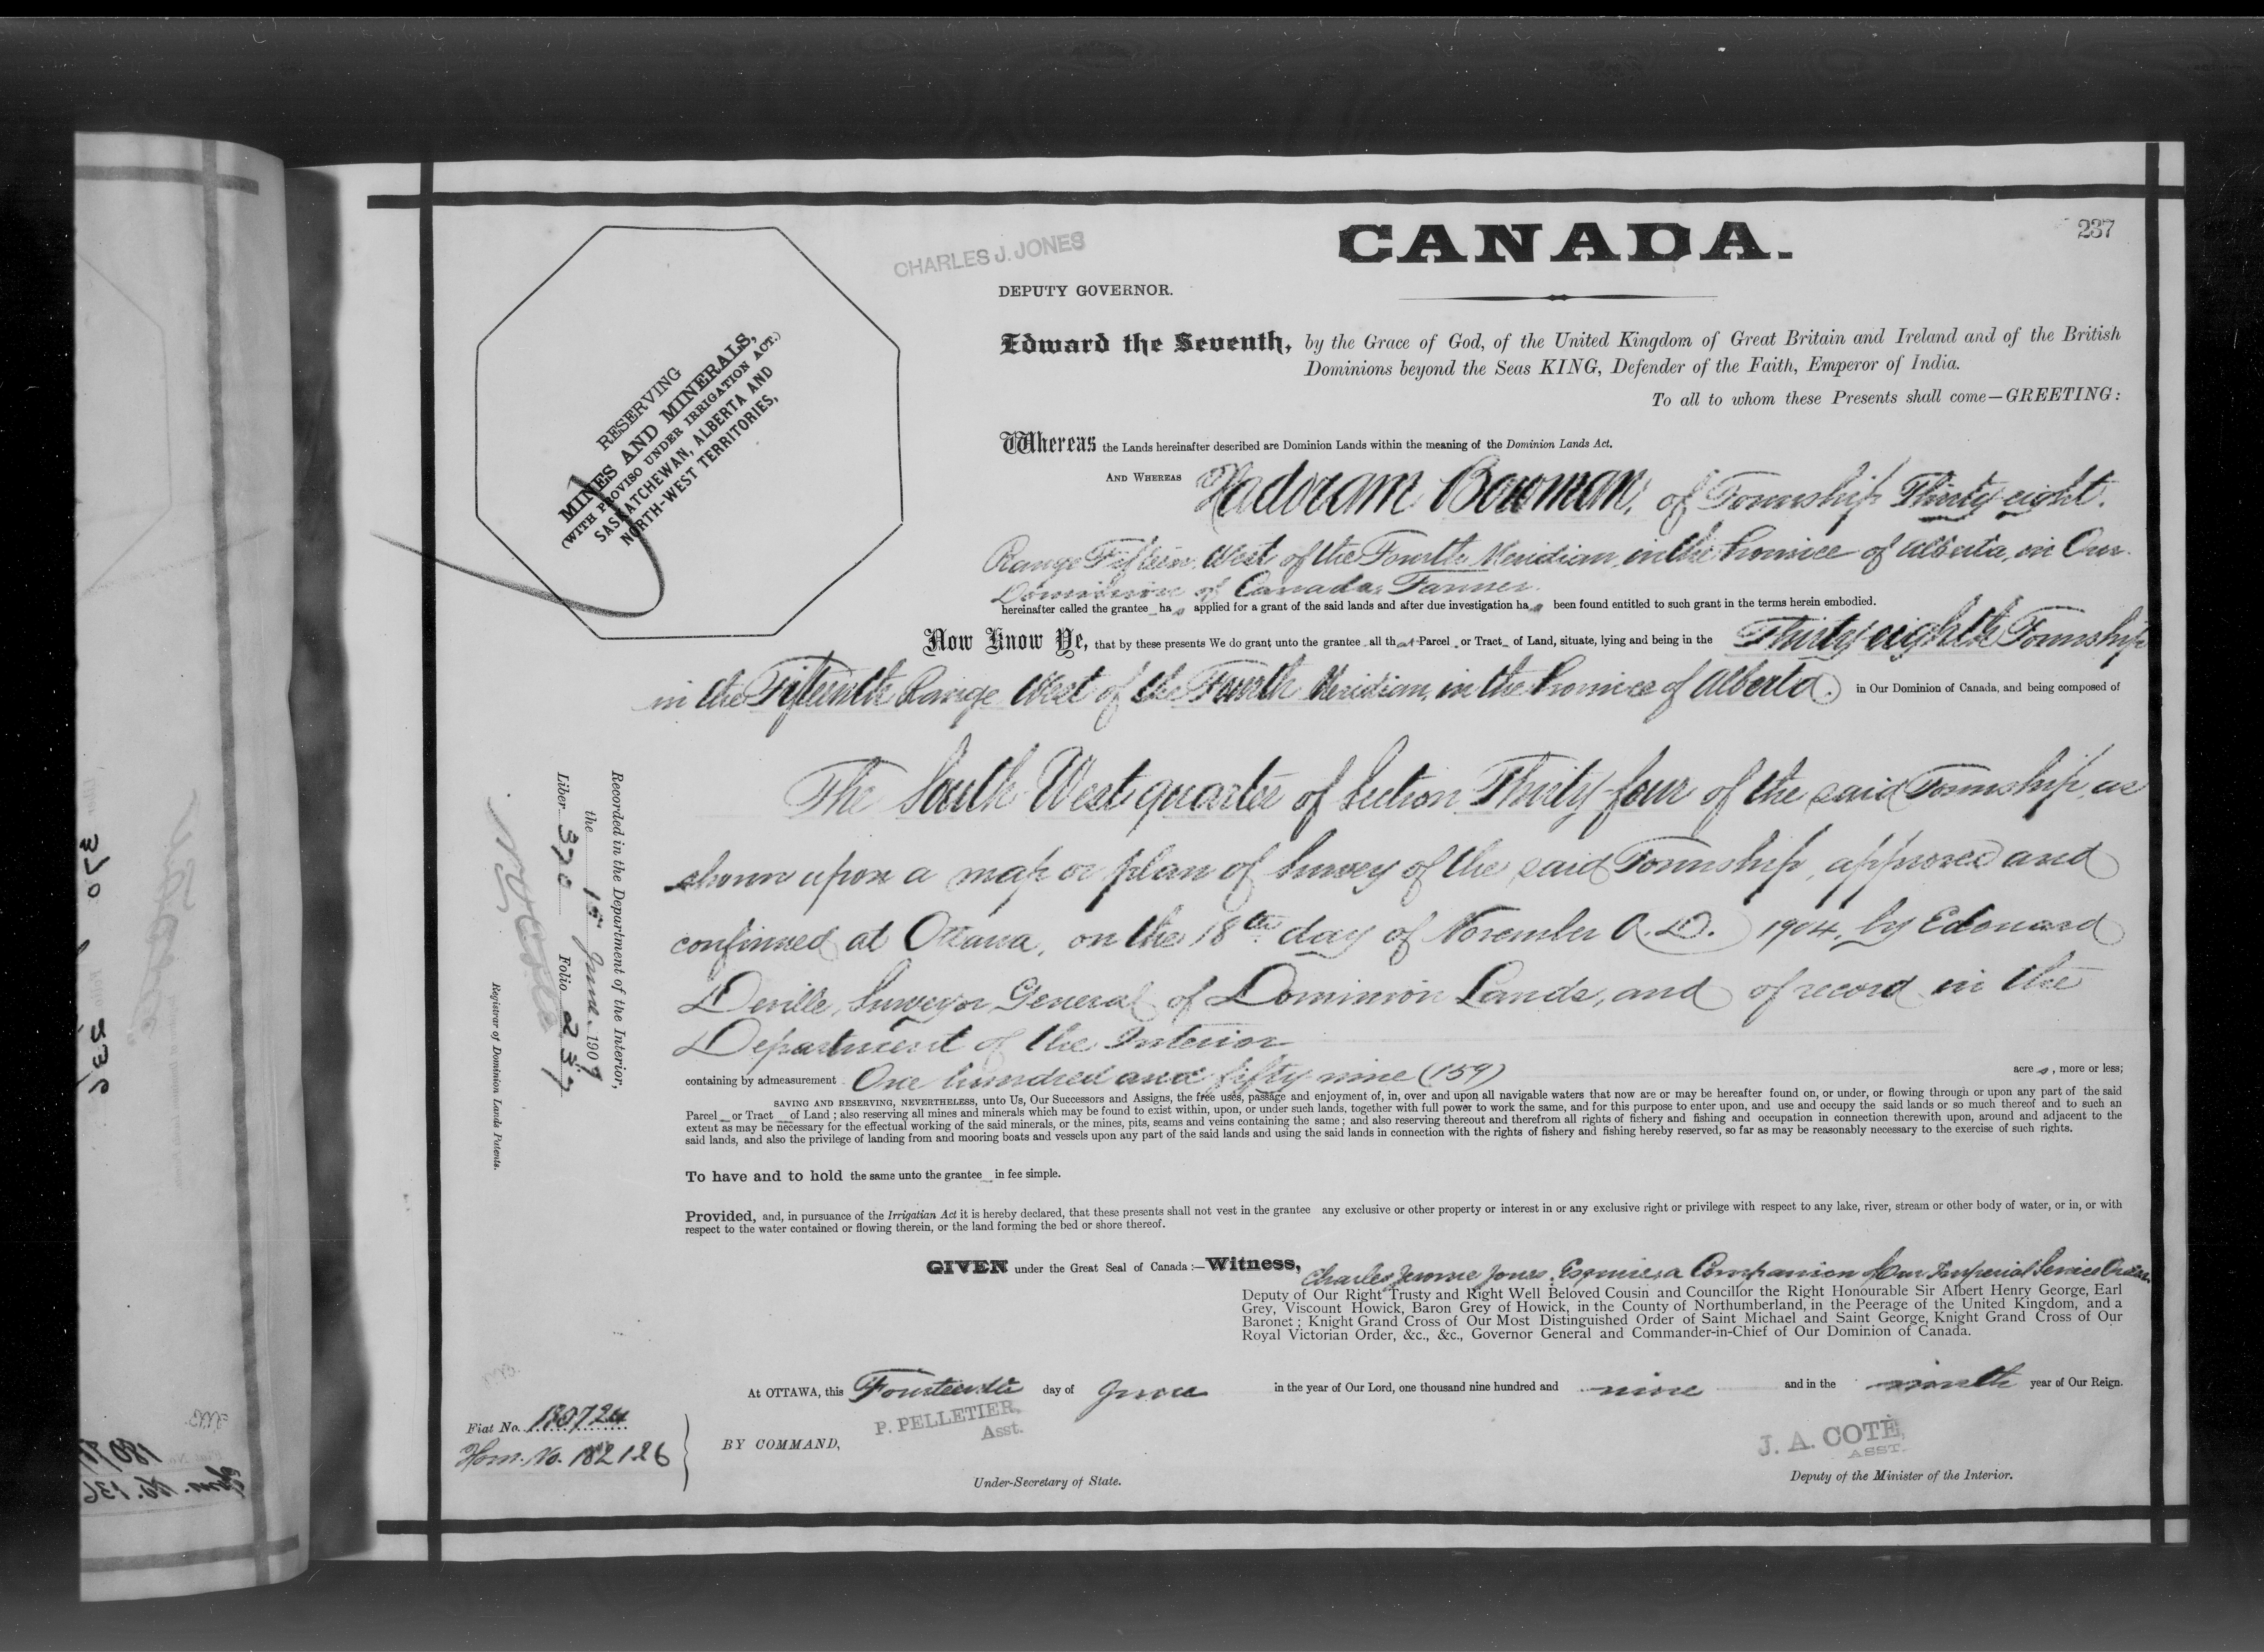 CANADA.
237
CHARLES J. JONES
DEPUTY GOVERNOR.
Edward the Seventh, by the Grace of God, of the United Kingdom of Great Britain and Ireland and of the British
Dominions beyond the Seas KING, Defender of the Faith, Emperor of India.
To all to whom these Presents shall come—GREETING:
RESERVING
MINES AND MINERALS,
(WITH PROVISO UNDER IRRIGATION ACT.)
SASKATCHEWAN, ALBERTA AND
NORTH-WEST TERRITORIES,
Whereas the Lands hereinafter described are Dominion Lands within the meaning of the Dominion Lands Act.
AND WHEREAS Hadoram Bowman, of Township Thirty eight,
Range Fifteen, West of the Fourth Meridian, in the Province of Alberta, in Our
Dominion of Canada, Farmer
hereinafter called the grantee has applied for a grant of the said lands and after due investigation has been found entitled to such grant in the terms herein embodied.
Now Know Ye, that by these presents We do grant unto the grantee all that Parcel or Tract of Land, situate, lying and being in the Thirty eighth Township
in the Fifteenth Range West of the Fourth Meridian, in the Province of Alberta. in Our Dominion of Canada, and being composed of
The South West quarter of Section Thirty four of the said Township, as
shown upon a map or plan of Survey of the said Township, approved and
confirmed at Ottawa, on the 18th day of November A.D. 1904, by Edouard
Deville, Surveyor General of Dominion Lands, and of record in the
Department of the Interior
containing by admeasurement One hundred and fifty nine (159) acres, more or less;
SAVING AND RESERVING, NEVERTHELESS, unto Us, Our Successors and Assigns, the free uses, passage and enjoyment of, in, over and upon all navigable waters that now are or may be hereafter found on, or under, or flowing through or upon any part of the said
Parcel or Tract of Land; also reserving all mines and minerals which may be found to exist within, upon, or under such lands, together with full power to work the same, and for this purpose to enter upon, and use and occupy the said lands or so much thereof and to such an
extent as may be necessary for the effectual working of the said minerals, or the mines, pits, seams and veins containing the same; and also reserving thereout and therefrom all rights of fishery and fishing and occupation in connection therewith upon, around and adjacent to the
said lands, and also the privilege of landing from and mooring boats and vessels upon any part of the said lands and using the said lands in connection with the rights of fishery and fishing hereby reserved, so far as may be reasonably necessary to the exercise of such rights.
To have and to hold the same unto the grantee in fee simple.
Provided, and, in pursuance of the Irrigatian Act it is hereby declared, that these presents shall not vest in the grantee any exclusive or other property or interest in or any exclusive right or privilege with respect to any lake, river, stream or other body of water, or in, or with
respect to the water contained or flowing therein, or the land forming the bed or shore thereof.
GIVEN under the Great Seal of Canada:—Witness, Charles Jerome Jones, Esquire, a Companion of Our Imperial Service Order
Deputy of Our Right Trusty and Right Well Beloved Cousin and Councillor the Right Honourable Sir Albert Henry George, Earl
Grey, Viscount Howick, Baron Grey of Howick, in the County of Northumberland, in the Peerage of the United Kingdom, and a
Baronet; Knight Grand Cross of Our Most Distinguished Order of Saint Michael and Saint George, Knight Grand Cross of Our
Royal Victorian Order, &c., &c., Governor General and Commander-in-Chief of Our Dominion of Canada.
At OTTAWA, this Fourteenth day of June in the year of Our Lord, one thousand nine hundred and nine and in the ninth year of Our Reign.
P. PELLETIER,
Asst.
BY COMMAND,
Under-Secretary of State.
J. A. COTÉ,
ASST.
Deputy of the Minister of the Interior.
Fiat No. 180724
Hom. No. 182126
Recorded in the Department of the Interior,
the June 1909
Liber 370 Folio 237
Registrar of Dominion Lands Patents.